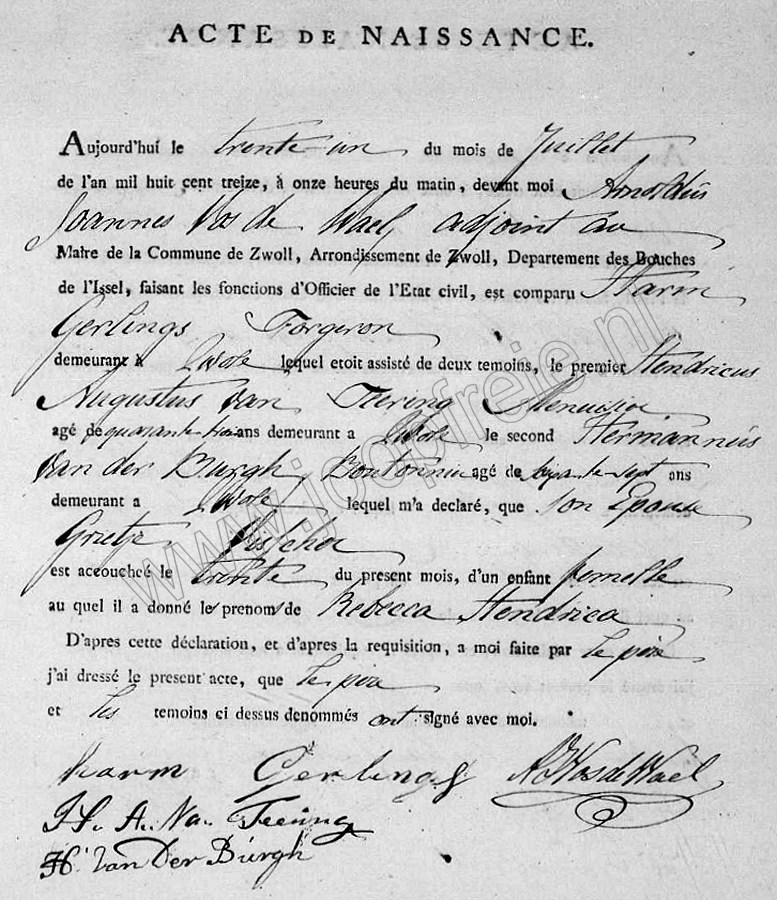 ACTE DE NAISSANCE.
Aujourd'hui le trente-un du mois de Juillet
de l'an mil huit cent treize, à onze heures du matin, devant moi Arnoldus
Joannes Vos de Wael adjoint au
Maire de la Commune de Zwoll, Arrondissement de Zwoll, Departement des Bouches
de l'Issel, faisant les fonctions d'Officier de l'Etat civil, est comparu Harm
Gerlings Forgeron
demeurant à Zwole lequel etoit assisté de deux temoins, le premier Hendricus
Augustus van Menuisier
agé de quarante trois ans demeurant a Zwole le second Hermannus
van der Burgh Boutonnier agé de sept ans
demeurant a Zwole lequel m'a declaré, que son Epouse
Grietje
est accouchcé le trente du present mois, d'un enfant femelle
au quel il a donné les prenoms de Rebecca Hendrica
D'apres cette déclaration, et d'apres la requisition, a moi faite par le père
j'ai dressé le present acte, que le père
et les temoins ci dessus denommés ont signé avec moi.
harm Gerlings AJVosdeWael
H. A. Va. Teeung
H. Van Der Burgh
www.joopfreie.nl